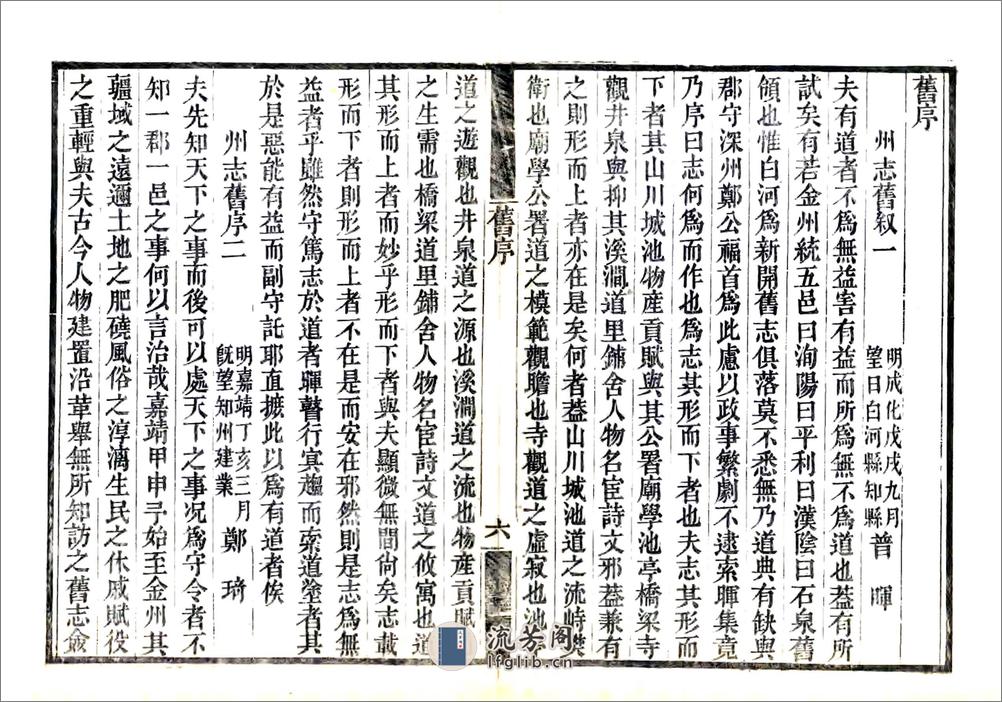 舊序
州志舊叙一
明成化戊戌九月
望日白河縣知縣
普暉
夫有道者不爲無益害有益而所爲無不爲道也葢有所
試矣有若金州統五邑曰洵陽曰平利曰漢陰曰石泉舊
領也惟白河爲新開舊志俱落莫不悉無乃道典有缺與
郡守深州鄭公福首爲此慮以政事繁劇不逮索暉集竟
乃序曰志何爲而作也爲志其形而下者也夫志其形而
下者其山川城池物產貢賦與其公署廟學池亭橋梁寺
觀井泉與抑其溪澗道里鋪舍人物名宦詩文邪葢兼有
之則形而上者亦在是矣何者葢山川城池道之流峙
衛也廟學公署道之模範觀瞻也寺觀道之虛寂也池
舊序
六
道之遊觀也井泉道之源也溪澗道之流也物產貢賦
之生需也橋梁道里鋪舍人物名宦詩文道之攸寓也道
其形而上者而妙乎形而下者與夫顯微無間尙矣志載
形而下者則形而上者不在是而安在邪然則是志爲無
益者乎雖然守篤志於道者暉瞽行㝠趨而索塗者其
於是惡能有益而副守託耶直摭此以爲有道者俟
州志舊序二
明嘉靖丁亥三月
旣望知州建業
鄭琦
夫先知天下之事而後可以處天下之事况爲守令者不
知一郡一邑之事何以言治哉嘉靖甲申予始至金州其
疆域之遠邇土地之肥磽風俗之淳漓生民之休戚賦役
之重輕與夫古今人物建置沿革舉無所知訪之舊志僉
流芳阁
lfglib.cn